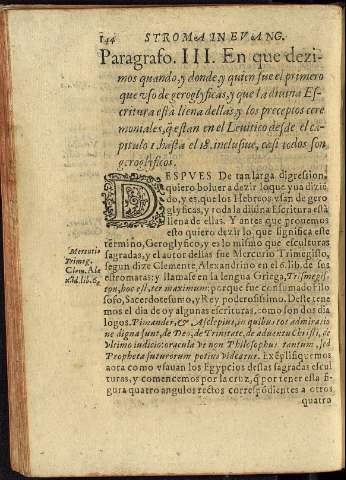 144 STROMA IN EVANG.
Paragrafo. III. En que dezi-
mos quando, y donde, y quien fue el primero
que vso de geroglyficas, y que la diuina Es-
critura està llena dellas, y los preceptos cere
moniales, q̃ estan en el Leuitico desde el ca-
pitulo 1. hasta el 18. inclusiue, casi todos son
geroglyficos.
DESPVES De tan larga digression,
quiero boluer a dezir lo que yua dizië
do, y es, que los Hebreos vsan de gero
glyficas, y toda la diuina Escritura està
llena de ellas. Y antes que prouemos
esto quiero dezir lo que significa este
termino, Geroglyfico, y es lo mismo que esculturas
sagradas, y el autor dellas fue Mercurio Trimegisto,
segun dize Clemente Alexandrino en el 6. lib. de sus
estromatas; y llamase en la lengua Griega, Trismegis-
ton, hoc est, ter maximum: porque fue consumado Filo
sofo, Sacerdote sumo, y Rey poderosissimo. Deste tene
mos el dia de oy algunas escrituras, como son dos dia
logos. Pimander, & Asclepius, in quibus tot admiratio
ne digna sunt, de Deo, de Trinitate, de aduentu Christi, de
vltimo iudicio: oracula vt non Philosophus tantum, sed
Propheta futurorum potius videatur. Exẽplifiquemos
aora como vsauan los Egypcios destas sagradas escul
turas, y comencemos por la cruz, q̃ por tener esta fi-
gura quatro angulos rectos correspõdientes a otros
quatro
Mercurio
Trimeg.
Clem. Ale
xãd. lib. 6.